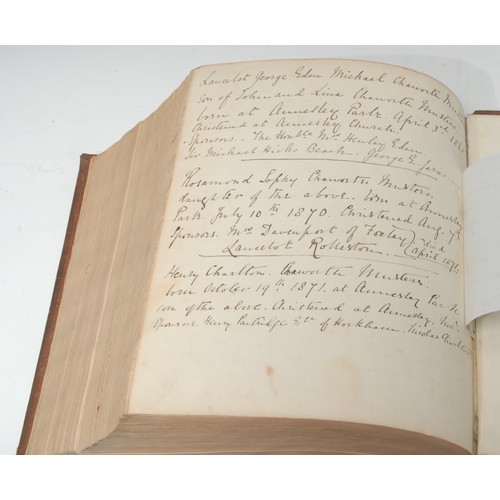 Lancelot George Eden Michael Chaworth
son of John and Lina Chaworth Musters
born at Annesley Park. April 3rd
Christened at Annesley Church.
Sponsors. The Honble Mrs Henley Eden.
Sir Michael Hicks Beach. George E.
Rosamond Sophy Chaworth Musters,
daughter of the above. born at Annesley
Park July 10th 1870. Christened Aug. 7th
Sponsors. Mrs Davenport of Foxley
Lancelot Rolleston. April 1871
Henry Charlton. Chaworth Musters.
born October 19th 1871. at Annesley Park
son of the above. Christened at Annesley.
Sponsors. Henry Partridge of Hockham.